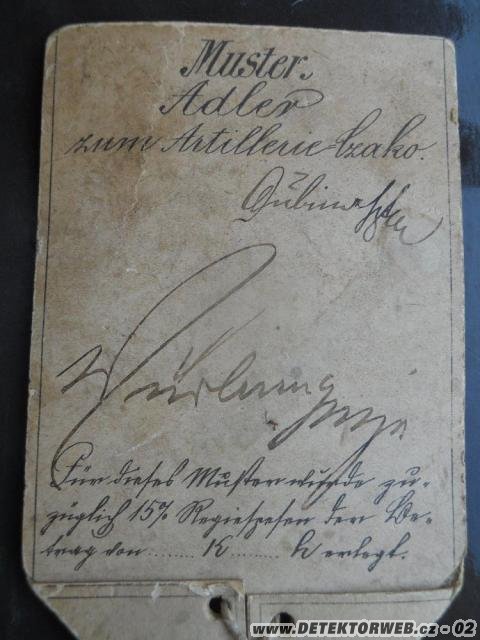 Muster.
Adler
zum Artillerie-Czako.
Für dieses Muster wurde zu-
züglich 15% Regiespesen der Be-
trag von ........ K ........ h erlegt.
www.DETEKTORWEB.cz - 02